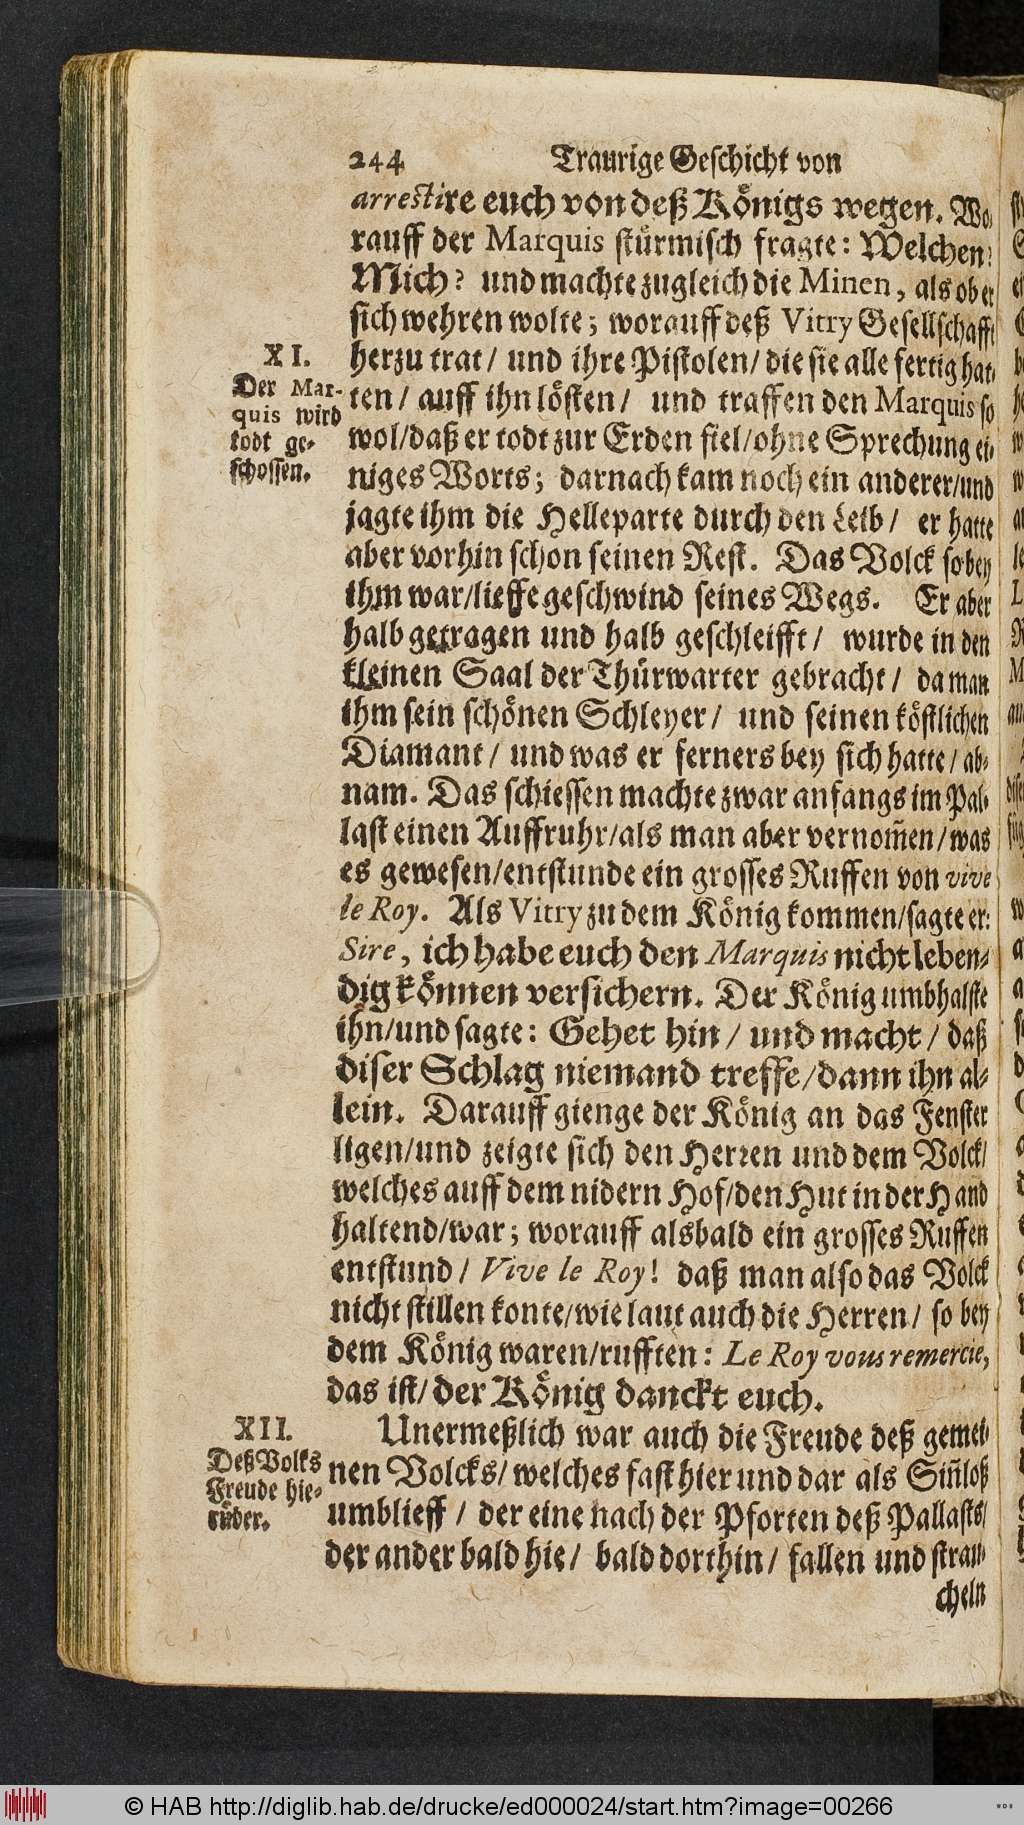 244 Traurige Geschicht von
arrestire euch von deß Königs wegen. Wo-
rauff der Marquis stürmisch fragte: Welchen?
Mich? und machte zugleich die Minen, als ob er
sich wehren wolte; worauff deß Vitry Gesellschafft
XI.
Der Mar-
quis wird
todt ge-
schossen.
herzu trat/ und ihre Pistolen/ die sie alle fertig hat-
ten/ auff ihn lösten/ und traffen den Marquis so
wol/daß er todt zur Erden fiel/ohne Sprechung ei-
niges Worts; darnach kam noch ein anderer/und
jagte ihm die Helleparte durch den Leib/ er hatte
aber vorhin schon seinen Rest. Das Volck so bey
ihm war/lieffe geschwind seines Wegs. Er aber
halb getragen und halb geschleifft/ wurde in den
kleinen Saal der Thürwarter gebracht/ da man
ihm sein schönen Schleyer/ und seinen köstlichen
Diamant/ und was er ferners bey sich hatte/ ab-
nam. Das schiessen machte zwar anfangs im Pal-
last einen Auffruhr/als man aber vernom̃en/was
es gewesen/entstunde ein grosses Ruffen von vive
le Roy. Als Vitry zu dem König kommen/sagte er:
Sire, ich habe euch den Marquis nicht leben-
dig können versichern. Der König umbhalste
ihn/und sagte: Gehet hin/ und macht/ daß
diser Schlag niemand treffe/dann ihn al-
lein. Darauff gienge der König an das Fenster
ligen/und zeigte sich den Herren und dem Volck/
welches auff dem nidern Hof/den Hut in der Hand
haltend/war; worauff alsbald ein grosses Ruffen
entstund/ Vive le Roy! daß man also das Volck
nicht stillen konte/wie laut auch die Herren/ so bey
dem König waren/rufften: Le Roy vous remercie,
das ist/ der König danckt euch.
XII.
Deß Volks
Freude hie-
rüber.
Unermeßlich war auch die Freude deß gemei-
nen Volcks/ welches fast hier und dar als Sin̄loß
umblieff/ der eine nach der Pforten deß Pallasts/
der ander bald hie/ bald dorthin/ fallen und strau-
cheln
© HAB http://diglib.hab.de/drucke/ed000024/start.htm?image=00266